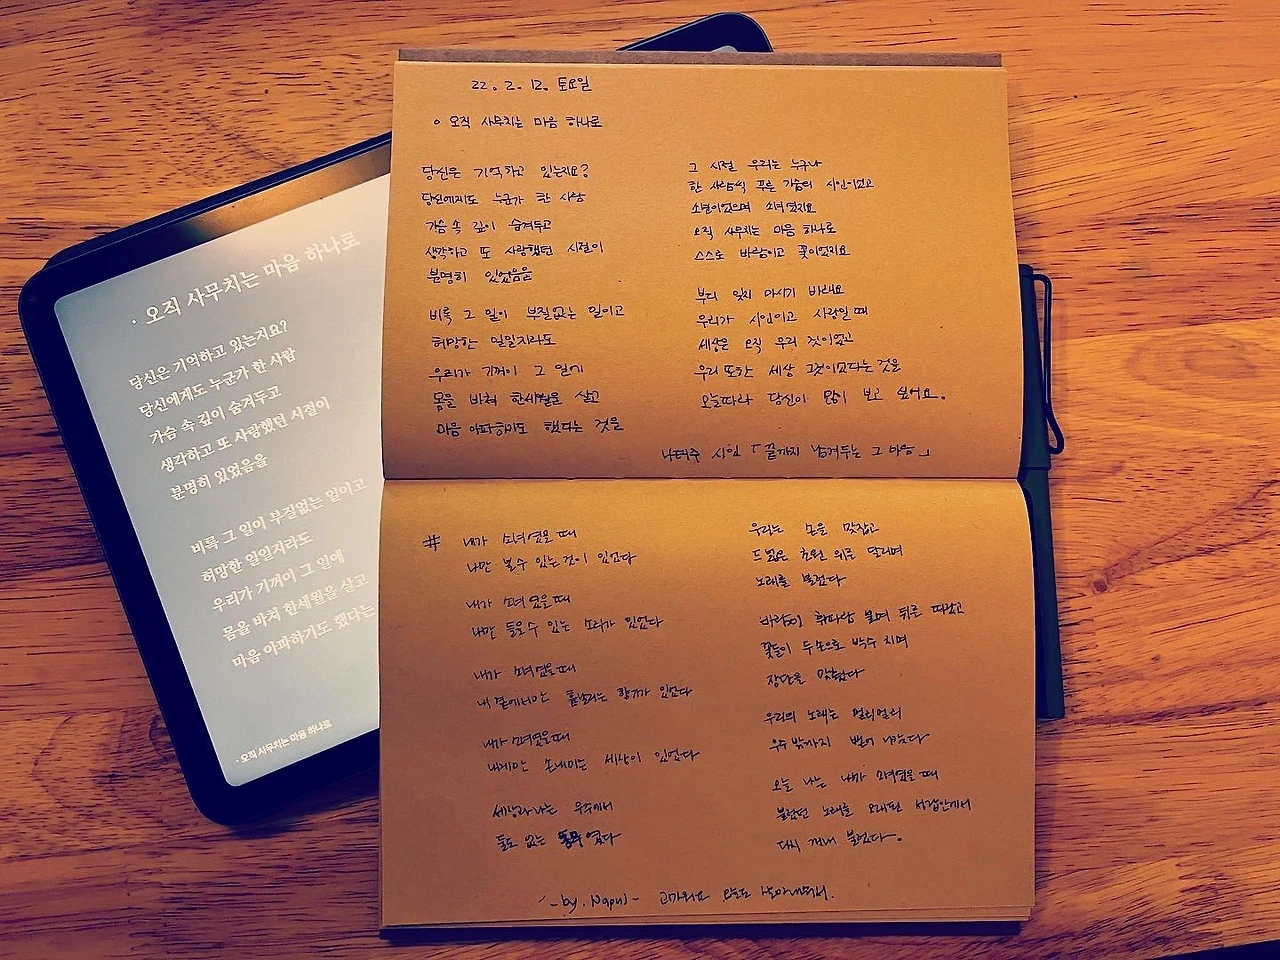 · 오직 사무치는 마음 하나로
당신은 기억하고 있는지요?
당신에게도 누군가 한 사람
가슴 속 깊이 숨겨두고
생각하고 또 사랑했던 시절이
분명히 있었음을
비록 그 일이 부질없는 일이고
허망한 일일지라도
우리가 기꺼이 그 일에
몸을 바쳐 한세월을 살고
마음 아파하기도 했다는
· 오직 사무치는 마음 하나로
22. 2. 12. 토요일
o 오직 사무치는 마음 하나로
당신은 기억하고 있는지요?
당신에게도 누군가 한 사람
가슴 속 깊이 숨겨두고
생각하고 또 사랑했던 시절이
분명히 있었음을
비록 그 일이 부질없는 일이고
허망한 일일지라도
우리가 기꺼이 그 일에
몸을 바쳐 한세월을 살고
마음 아파하기도 했다는 것을
그 시절 우리는 누구나
한 사람씩 푸른 가슴의 시인이었고
소년이었으며 소녀였지요
오직 사무치는 마음 하나로
스스로 바람이고 꽃이었지요
부디 잊지 마시기 바래요
우리가 시인이고 사랑일 때
세상은 오직 우리 것이었고
우리 또한 세상 그것이었다는 것을
오늘따라 당신이 많이 보고 싶어요.
나태주 시인 「끝까지 남겨두는 그 마음」
# 내가 소녀였을 때
나만 볼 수 있는 것이 있었다
내가 소녀였을 때
나만 들을 수 있는 소리가 있었다
내가 소녀였을 때
내 곁에서만 흩날리는 향기가 있었다
내가 소녀였을 때
내게만 손내미는 세상이 있었다
세상과 나는 우주에서
둘도 없는 동무였다
우리는 손을 맞잡고
드넓은 초원 위를 달리며
노래를 불렀다
바람이 휘파람 불며 뒤를 따랐고
꽃들이 두 손으로 박수 치며
장단을 맞췄다
우리의 노래는 멀리멀리
우주 밖까지 뻗어 나갔다
오늘 나는 내가 소녀였을 때
불렀던 노래를 오래된 서랍안에서
다시 꺼내 불렀다.
- by. Napul - 고마워요 오늘도 살아내줘서.